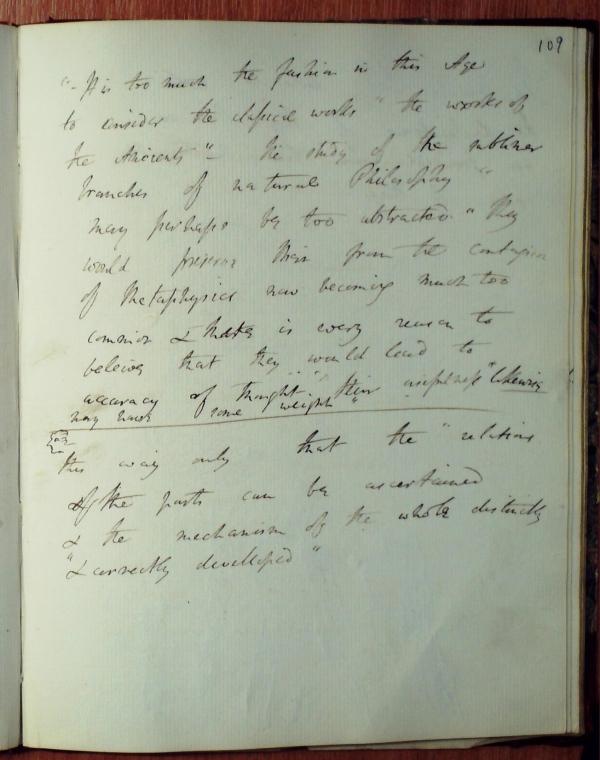 109
"- It is too much the fashion in this Age
to consider the classical works " the works of
the Ancients "- the study of the sublimer
branches of natural Philosophy "
may perhaps be too abstracted " they
would preserve them from the contagion
of Metaphysics now becoming much too
common & there is every reason to
beleive that they would lead to
accuracy of thought " their usefulness " likewise
may have some weight "
this way only that the " relations
of the parts can be ascertained
& the mechanism of the whole distinctly
"& correctly developed "